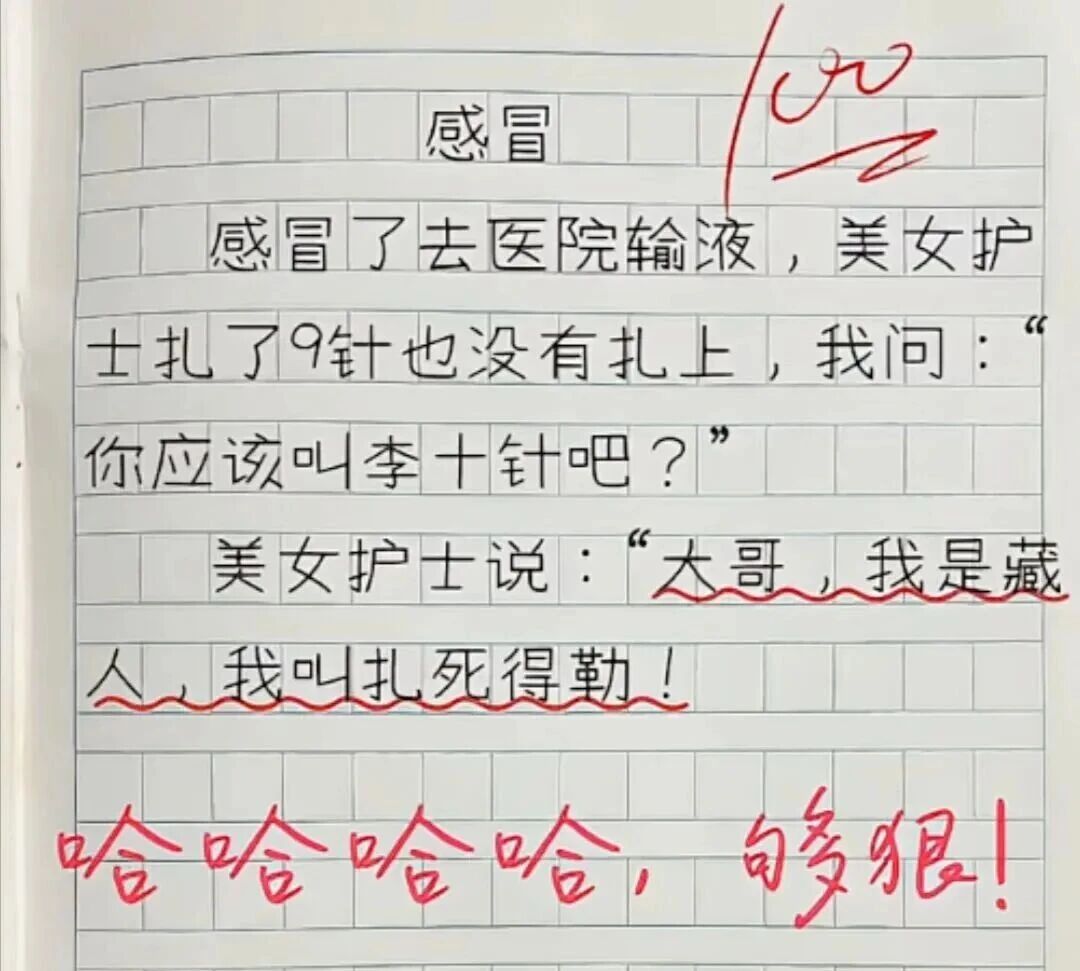 100
感冒
感冒了去医院输液，美女护
士扎了9针也没有扎上，我问：“
你应该叫李十针吧？”
美女护士说：“大哥，我是藏
人，我叫扎死得勒！
哈哈哈哈，够狠！